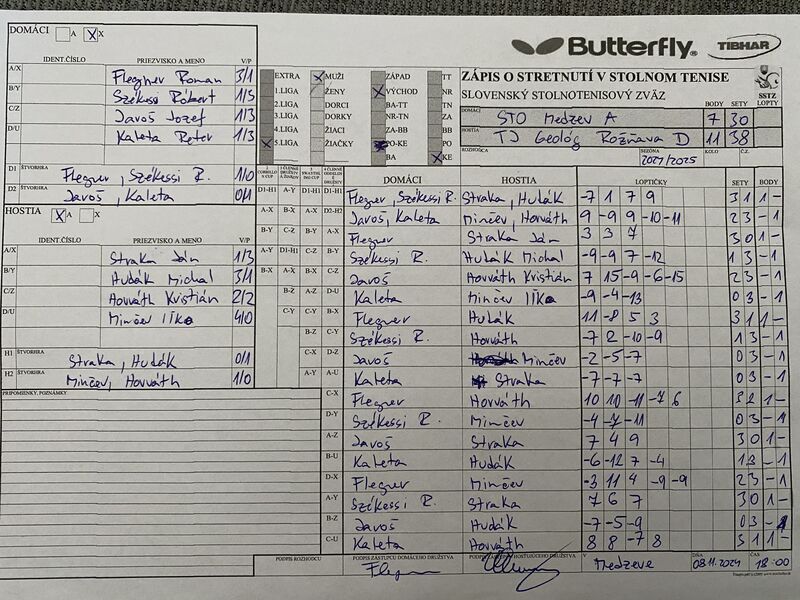 DOMÁCI A X
IDENT.ČÍSLO PRIEZVISKO A MENO V/P
A/X Flegner Roman 3/1
B/Y Székessi Róbert 1/3
C/Z Javoš Jozef 1/3
D/U Kaleta Peter 1/3
D1 ŠTVORHRA Flegner, Székessi R. 1/0
D2 ŠTVORHRA Javoš, Kaleta 0/1
HOSTIA X X
IDENT.ČÍSLO PRIEZVISKO A MENO V/P
A/X Straka Ján 1/3
B/Y Hudák Michal 3/1
C/Z Horváth Kristián 2/2
D/U Minčev Ilko 4/0
H1 ŠTVORHRA Straka, Hudák 0/1
H2 ŠTVORHRA Minčev, Horváth 1/0
PRIPOMIENKY, POZNÁMKY
Butterfly TIBHAR
ZÁPIS O STRETNUTÍ V STOLNOM TENISE
SLOVENSKÝ STOLNOTENISOVÝ ZVÄZ
SSTZ
EXTRA X MUŽI ZÁPAD TT
1.LIGA ŽENY X VÝCHOD NR
2.LIGA DORCI BA-TT TN
3.LIGA DORKY NR-TN ZA
4.LIGA ŽIACI ZA-BB BB
X 5.LIGA ŽIAČKY PO-KE PO
BA X KE
BODY SETY LOPTY
DOMÁCI STO Medzev A 7 30
HOSTIA TJ Geológ Rožňava D 11 38
ROZHODCA SEZÓNA 2021/2025 KOLO Č.Z.
DOMÁCI HOSTIA LOPTIČKY SETY BODY
D1-H1 A-Y D1-H1 D1-H1 Flegner, Székessi R. Straka, Hudák -7 1 7 9 3 1 1 -
A-X B-X A-X D2-H2 Javoš, Kaleta Minčev, Horváth 9 -9 9 -10 -11 2 3 - 1
B-Y C-Z B-Y A-X Flegner Straka Ján 3 3 7 3 0 1 -
A-Y D1-H1 C-Z B-Y Székessi R. Hudák Michal -9 -9 7 -12 1 3 - 1
B-X A-X B-X C-Z Javoš Horváth Kristián 7 15 -9 -6 -15 2 3 - 1
B-Z A-Z D-U Kaleta Minčev Ilko -9 -4 -13 0 3 - 1
C-Y C-Y B-X Flegner Hudák 11 -8 5 3 3 1 1 -
B-Z C-Y Székessi R. Horváth -7 2 -10 -9 1 3 - 1
C-X D-Z Javoš Minčev -2 -5 -7 0 3 - 1
A-Y A-U Kaleta Straka -7 -7 -7 0 3 - 1
C-X Flegner Horváth 10 10 -11 -7 6 3 2 1 -
D-Y Székessi R. Minčev -4 -7 -11 0 3 - 1
A-Z Javoš Straka 7 4 9 3 0 1 -
B-U Kaleta Hudák -6 -12 7 -4 1 3 - 1
D-X Flegner Minčev -3 11 4 -9 -9 2 3 - 1
A-Y Székessi R. Straka 7 6 7 3 0 1 -
B-Z Javoš Hudák -7 -5 -9 0 3 - 1
C-U Kaleta Horváth 8 8 -7 8 3 1 1 -
PODPIS ROZHODCU PODPIS ZÁSTUPCU DOMÁCEHO DRUŽSTVA HOSŤUJÚCEHO DRUŽSTVA V Medzeve DŇA 08.11.2024 ČAS 18:00